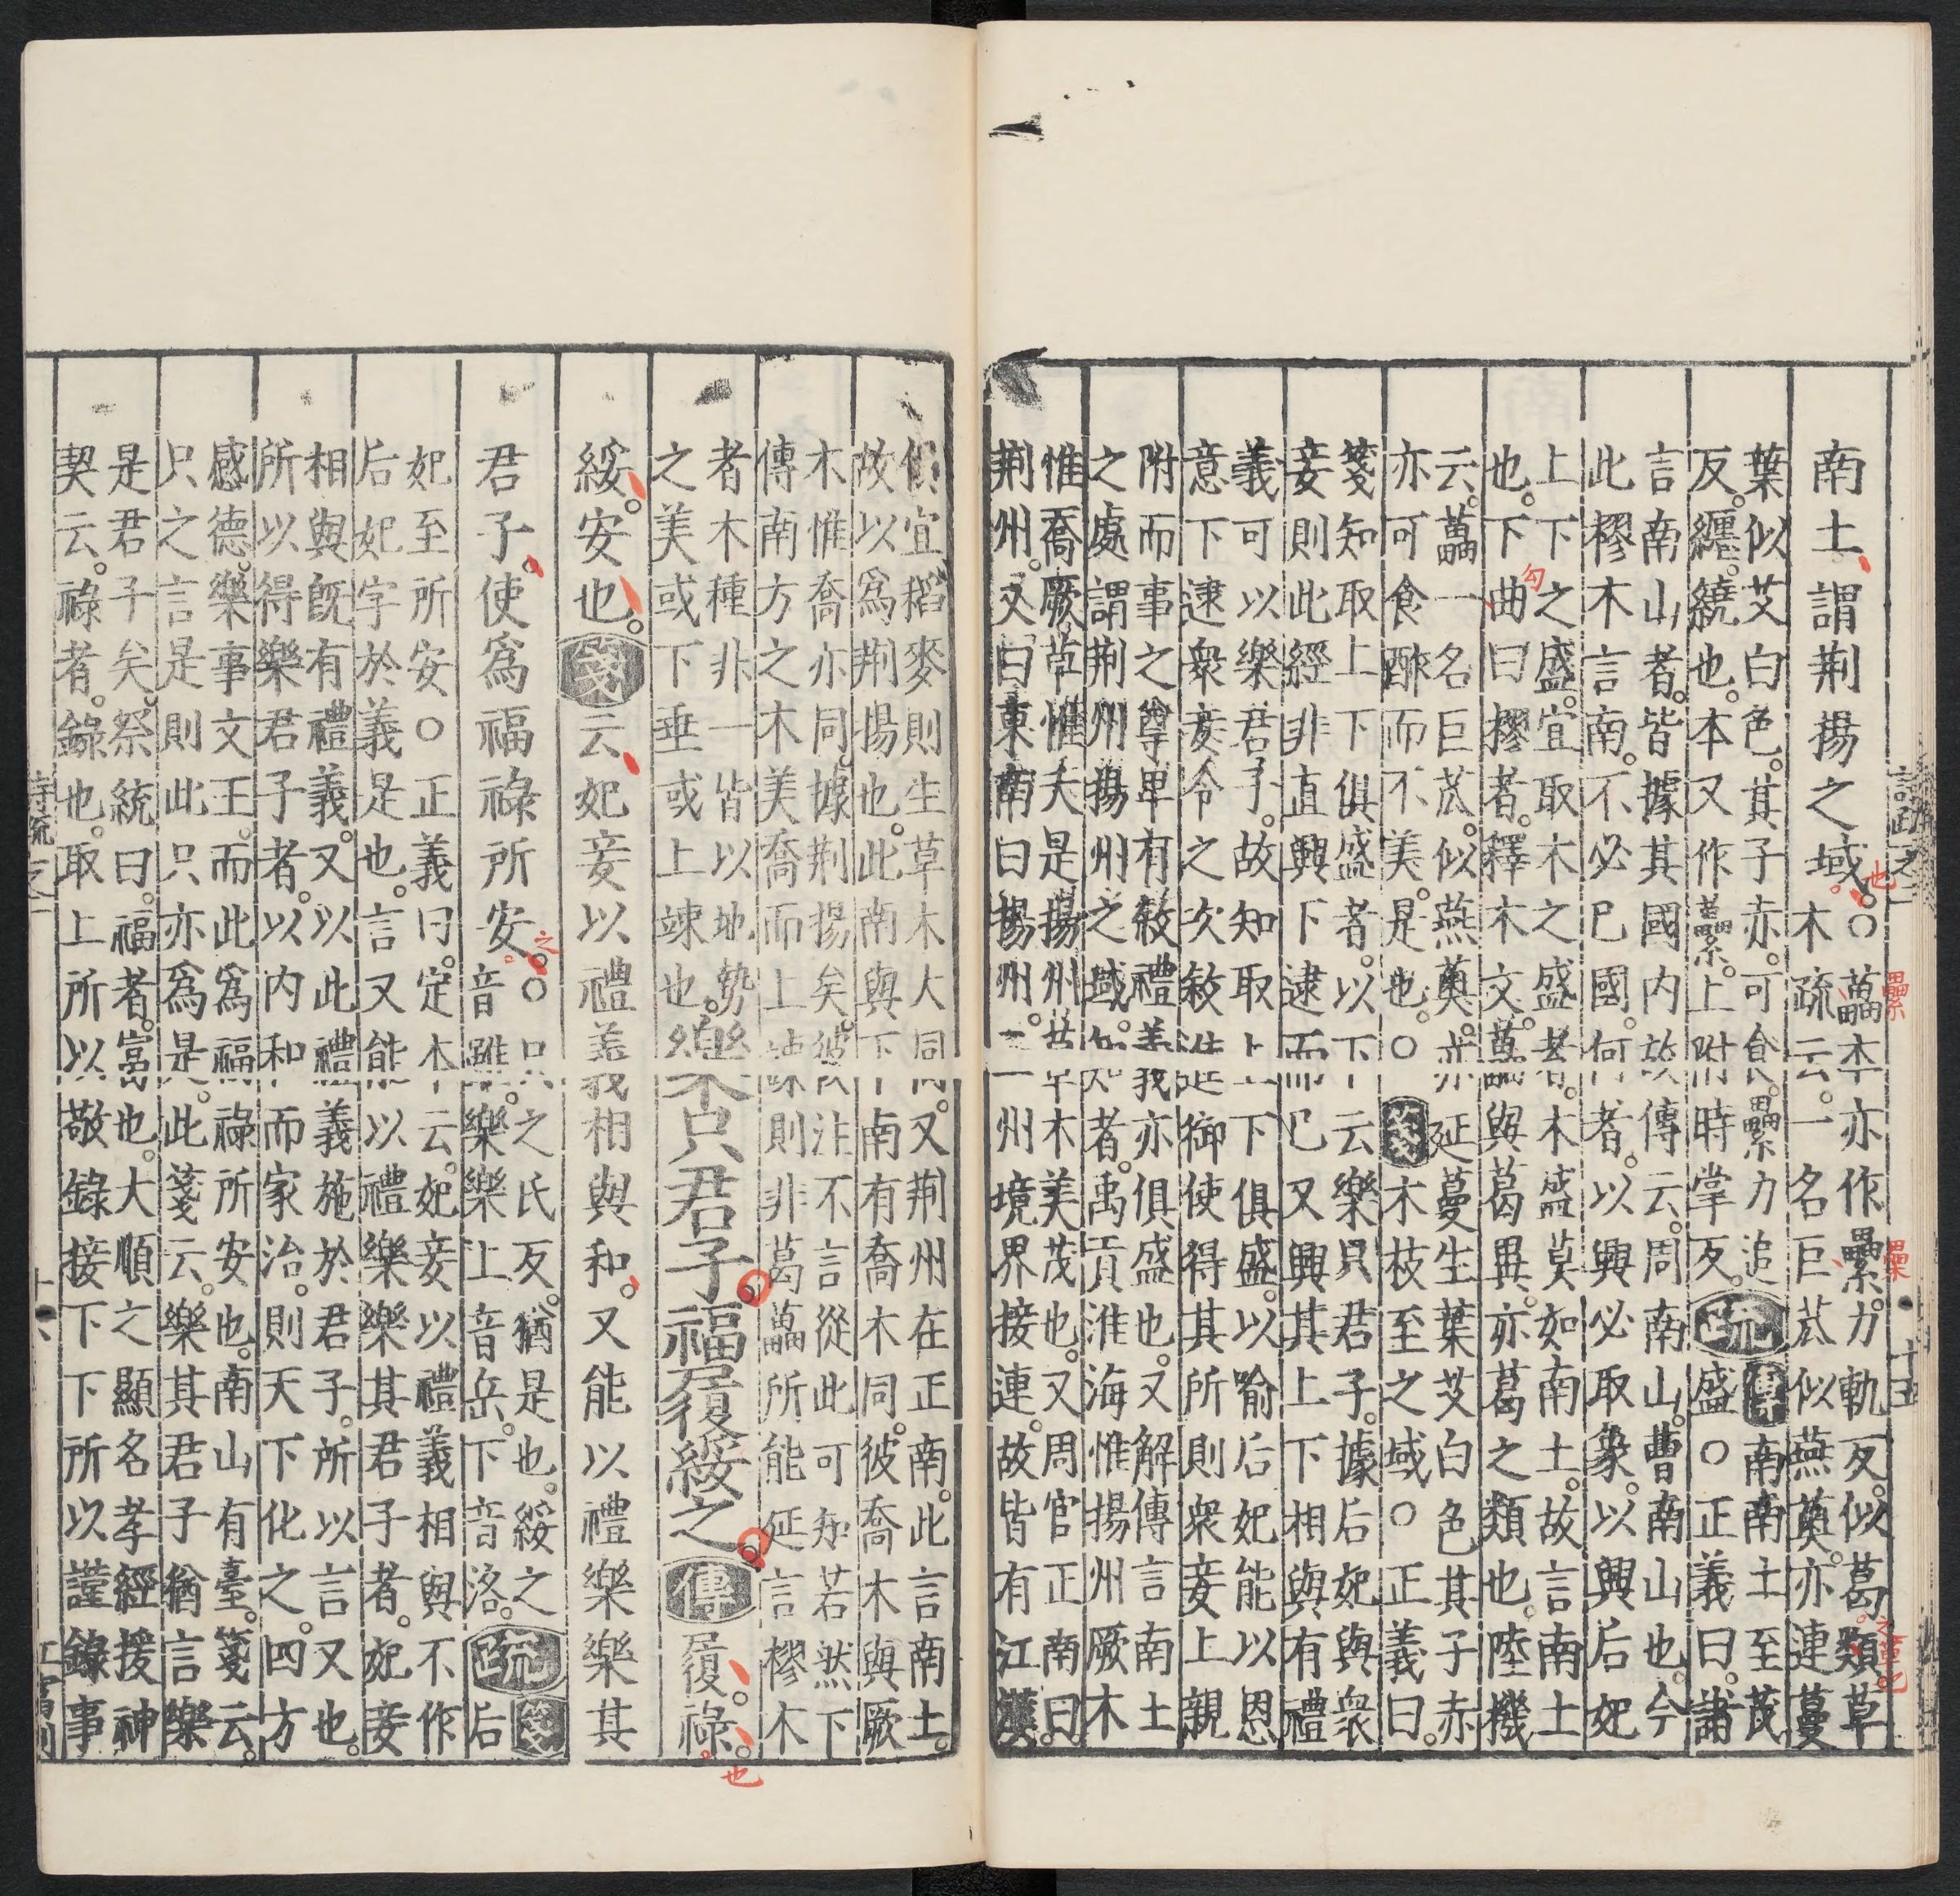 南土謂荆揚之域○藟本亦作虆力軌反似葛類草
木疏云一名巨苽似燕薁亦連蔓
葉似艾白色其子赤可食纍力追
反纒繞也本又作虆上附時掌反疏傳南南土至茂
盛○正義曰諸
言南山者皆據其國内故傳云周南山曹南山也今
此樛木言南不必已國何者以興必取象以興后妃
上下之盛宜取木之盛者木盛莫如南土故言南土
也下曲曰樛者釋木文藟與葛異亦葛之類也陸機
云藟一名巨苽似燕薁亦延蔓生葉艾白色其子赤
亦可食酢而不美是也○箋木枝至之域○正義曰
箋知取上下俱盛者以下云樂只君子據后妃與衆
妾則此經非直興下逮而已又興其上下相與有禮
義可以樂君子故知取上下俱盛以喻后妃能以恩
意下逮衆妾令之次敘進御使得其所則衆妾上親
附而事之尊卑有敘禮義亦俱盛也又解傳言南土
之處謂荆州揚州之域知者禹貢淮海惟揚州厥木
惟喬厥草惟夭是揚州草木美茂也又周官正南曰
荆州又曰東南曰揚州二州境界接連故皆有江漢
俱宜稻麥則生草木大同又荆州在正南此言南土
故以爲荆揚也此南與下南有喬木同彼喬木與厥
木惟喬亦同據荆揚矣彼注不言從此可知若然下
傳南方之木美喬而上竦則非葛藟所能延言樛木
者木種非一皆以地勢
之美或下垂或上竦也樂只君子福履綏之傳履祿
綏安也箋云妃妾以禮義相與和又能以禮樂樂其
君子使爲福祿所安○只之氏反猶是也綏之
音雖樂樂上音岳下音洛疏箋后
妃至所安○正義曰定本云妃妾以禮義相與不作
后妃字於義是也言又能以禮樂樂其君子者妃妾
相與既有禮義又以此禮義施於君子所以言又也
所以得樂君子者以内和而家治則天下化之四方
感德樂事文王而此爲福祿所安也南山有臺箋云
只之言是則此只亦爲是此箋云樂其君子猶言樂
是君子矣祭統曰福者富也大順之顯名孝經援神
契云祿者錄也取上所以敬錄接下下所以謹錄事